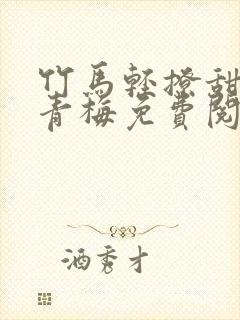 竹馬輕撩甜
青梅免費閱
酒秀才